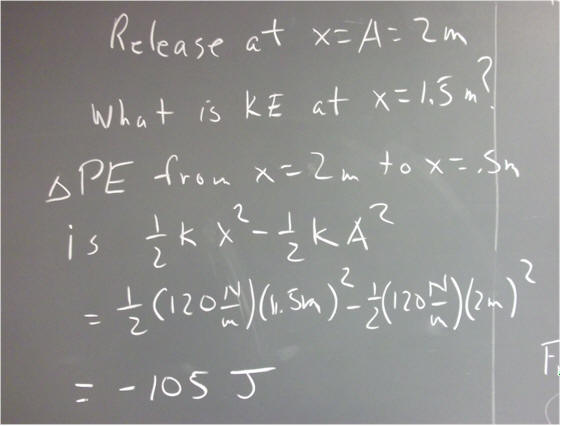 Release at x = A = 2 m
What is KE at x = 1.5 m?
ΔPE from x = 2 m to x = .5m
is 1/2 k x² - 1/2 k A²
= 1/2 (120 N/m)(1.5m)² - 1/2 (120 N/m)(2m)²
= -105 J
F